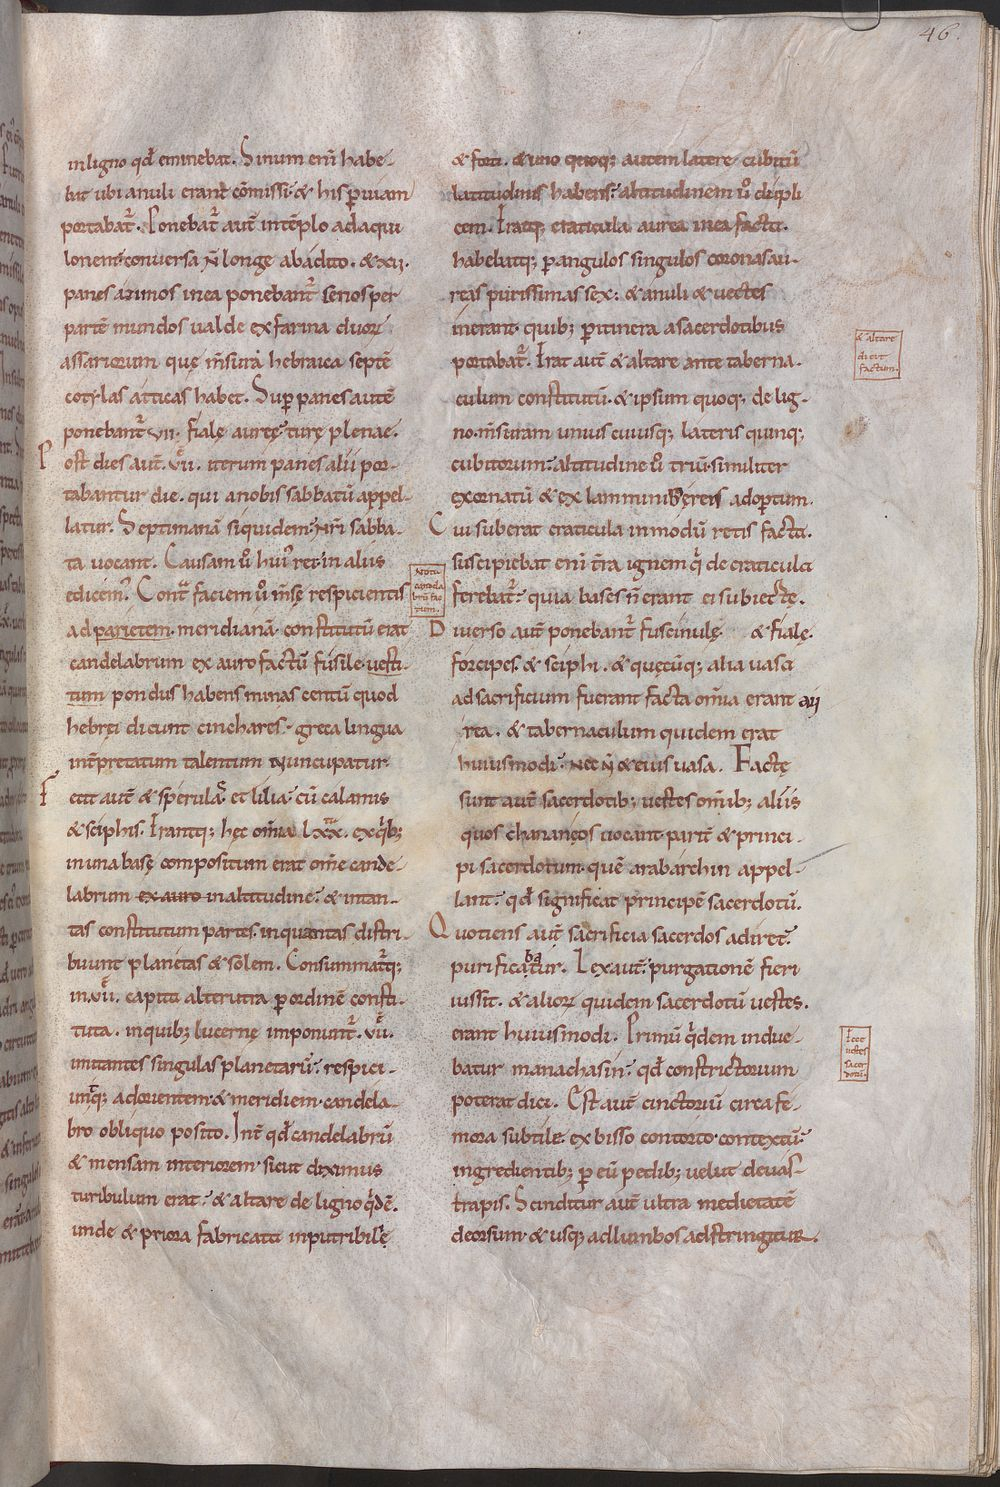 46.
in ligno qđ eminebat. Sinum eni habe-
bat ubi anuli erant cōmissi. & his p̱ uiam
portabat᷑. Ponebat᷑ aut̄ in tēplo ad aqui
lonem conuersa n̄ longe ab adito. & xii.
panes azimos in ea ponebant᷑ senos per
partē mundos ualde ex farina duoꝝ
assariorum quę m̄sura hebraica septē
cotylas atticas habet. Sup̱ panes autē
ponebant᷑ vii. fialę aureę turę plenae.
Post dies aut̄. vii. iterum panes alii por-
tabantur die. qui a nobis sabbatū appel-
latur. Septimanā siquidem. nr̄i sabba-
ta uocant. Causam u͛o hui᷒ rei. in aliis
edicem᷒. Contᵃ faciem u͛o m̄sę respicientis
ad parietem. meridianā. constitutū erat
candelabrum ex auro factū fusile uesti-
tum pondus habens minas centū quod
hebręi dicunt cinchares. greca lingua
int̄pretatum talentum nuncupatur.
Fecit aut̄ & sperula. et lilia. cū calamis
& sciphis. Erantq; hęc om̄ia lxx. ex qͥb;
in una basę compositum erat om̄e cande-
labrum ex auro in altitudine. & in tan-
tas constitutum partes. in quantas distri-
buunt planetas & solem. Consummat᷑q;
in. vii. capita alterutra p̱ ordinē consti-
tuta. in quib; lucernę imponunt᷑. vii.
imitantes singulas planetarū. respici-
unt q; ad orientem & meridiem. candela-
bro obliquo posito. Int̄ qđ candelabrū
& mensam interiorem. sicut diximus
turibulum erat. & altare de ligno qͥdē.
unde & priora fabricata inputribilę
Nota
candela
brū fac
tum.
& forti. & uno quoq; autem latere cubitū
latitudinis habens. altitudinem u͛o dupli
cem. Eratq; craticula aurea in ea facta.
habebatq; p̱ angulos singulos coronas au-
reas purissimas sex. & anuli & uectes
inerant. quib; p̱ itinera a sacerdotibus
portabat᷑. Erat aut̄ & altare ante taberna-
culum constitutū. & ipsum quoq; de lig-
no. m̄suram unius cuiusq; lateris quinq;
cubitorum. altitudine u͛o triū. similiter
exornatū & ex lamminis ęreis adoptum.
Cui suberat craticula in modū retis facta.
suscipiebat eni t̄ra ignem qͥ de craticula
ferebat᷑. quia bases n̄ erant ei subiectę.
Diuerso aut̄ ponebant᷑ fuscinulę & fialę.
forcipes. & sciphi. & quęcūq; alia uasa
ad sacrificium fuerant facta om̄ia erant au
rea. & tabernaculum quidem erat
huiusmodi. nec n̄ & eius uasa. Factę
sunt aut̄ sacerdotib; uestes om̄ib; aliis
quos chananęos uocant. parit̄ & princi-
pi sacerdotum. quē arabarchin appel-
lant. qđ significat principē sacerdotū.
Quotiens aut̄ sacrificia sacerdos adiret.
purificabatur. Lex aut̄. purgationē fieri
iussit. & alioꝝ quidem sacerdotū uestes.
erant huiusmodi. Primū qͥdem indue-
batur manachasin. qđ constrictorium
poterat dici. Est aut̄ cinctoriū circa fe-
mora subtile ex bisso contorto. contextū.
ingredientib; p̱ eū pedib; uelut de uas-
trapis. Scinditur aut̄ ultra medietatē
deorsum. & usq; ad lumbos adstringitur.
& altare
dicit
factum.
Fecit
uestes
sacer
dotū.